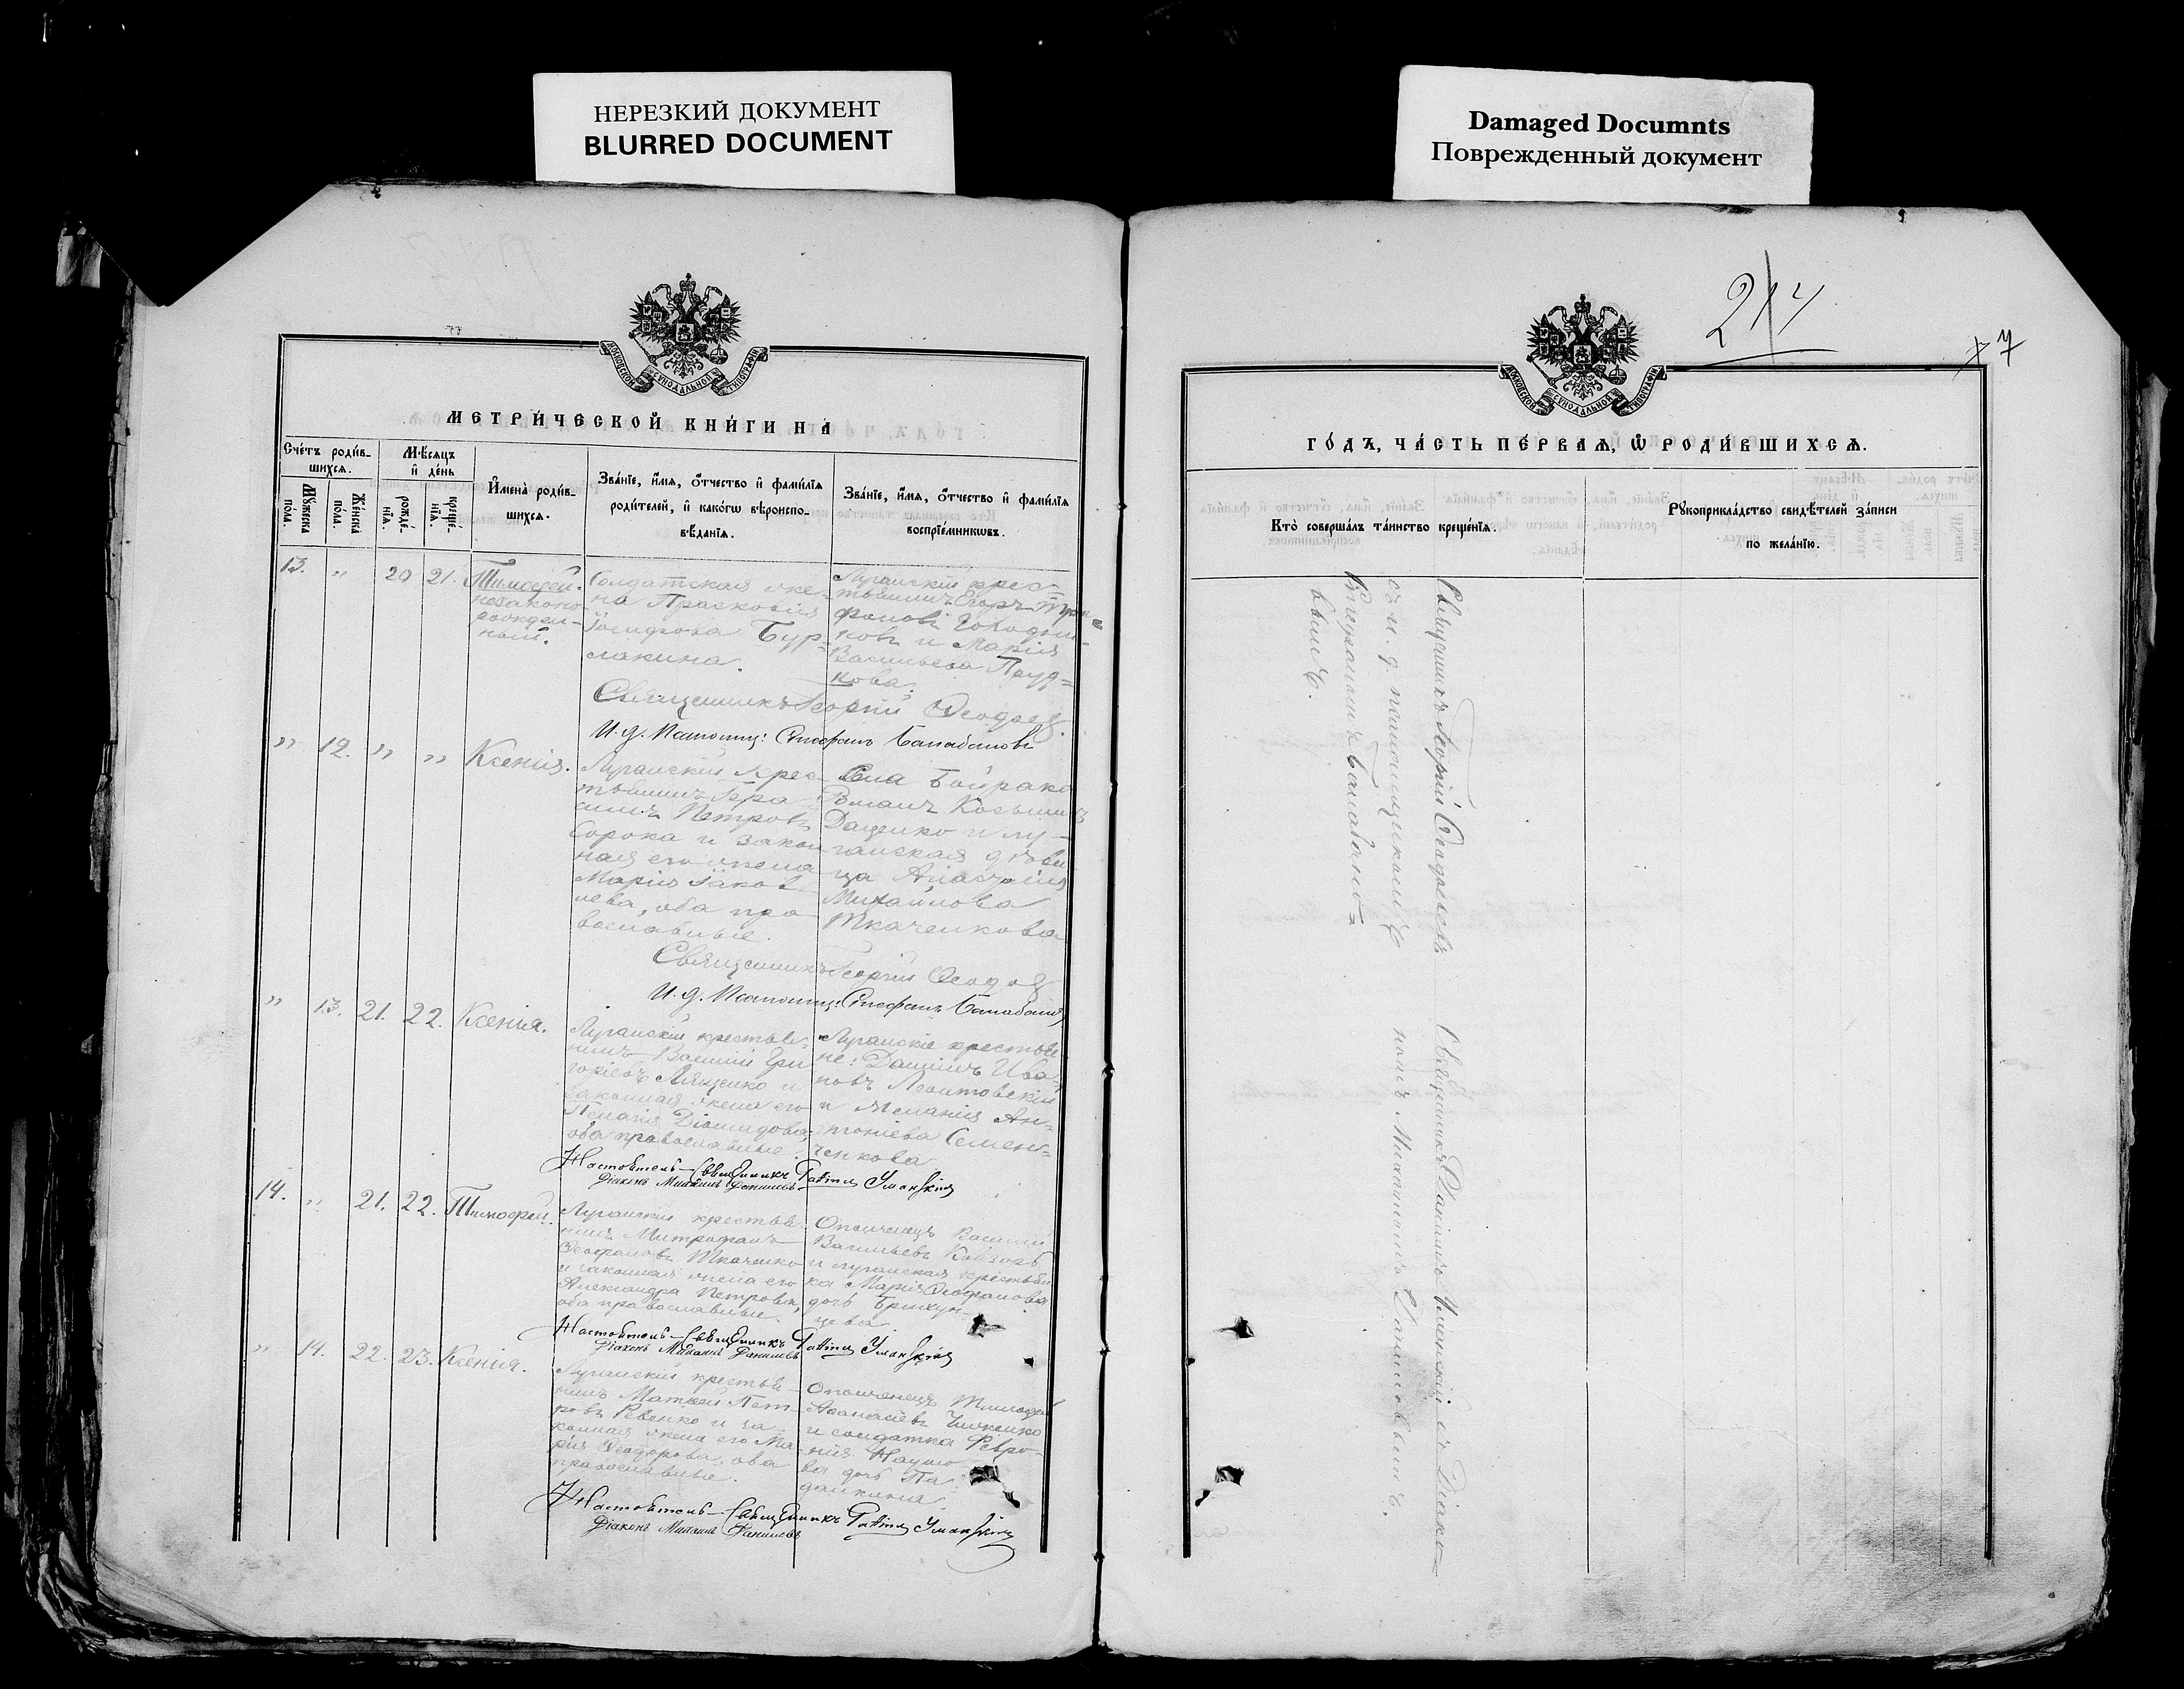 НЕРЕЗКИЙ ДОКУМЕНТ
BLURRED DOCUMENT
Damaged Documnts
Поврежденный документ
МОСКОВСКОЙ СУНОДАЛЬНОЙ ТИПОГРАФІИ
МЕТРИ́ЧЕСКОЙ КНИ́ГИ НА
Сче́тъ роди́в-
шихся.
Мѣсяцъ
и де́нь
Му́жеска
по́ла.
Же́нска
по́ла.
рожде́-
нїя.
креще́-
нїя.
Имена̀ роди́в-
шихся.
Зва́нїе, и́мя, ѻ́тчество и фами́лїя
роди́телей, и како́гѡ вѣроиспо-
вѣ́данїя.
Зва́нїе, и́мя, ѻ́тчество и фами́лїя
воспрїе́мникѡвъ.
13. " 20 21. Тимофей.
незаконо-
рожден-
ный.
Солдатская же-
на Параскосія
Іосифова Бур-
лакина.
Луганскій крес-
тьянинъ Егоръ
и Марія
Васильева Пруд=
кова.
Священникъ Георгій Феодоровъ
И. д. псаломщ: Стефанъ Балабановъ
" 12. " " Ксенія.
Луганскій крес-
тьянинъ Гера-
симъ Петровъ
Сорока и закон-
ная его жена
Марія Іаков-
лева, оба пра-
вославные.
Села
Романъ Косьминъ
Даценко и лу-
ганская дѣви-
ца Анастасія
Михайлова
Ткаченкова
Священникъ Георгій
И. д. псаломщ: Стефанъ Балабановъ
" 13. 21. 22. Ксенія.
Луганскій крестья-
нинъ Василій Гри-
горіевъ Ляшенко и
законная жена его
Пелагія Діомидова,
оба православные.
Луганскіе крестья
не: Даніилъ Ива-
новъ Леонтовскій
и Меланія Ан-
тоніева Семен-
ченкова
Настоятель-Священникъ Уманскій
Діаконъ Михаилъ Даниловъ
14. " 21. 22. Тимофей.
Луганскій крестья-
нинъ Митрофанъ
Феофановъ Ткаченко
и законная жена его
Александра Петрова,
оба православные.
Ополченецъ Василій
Васильевъ Кобзарь
и луганская крестьян
ка Марія Феофанова
дочь Брихун-
цева.
Настоятель-Священникъ Уманскій
Діаконъ Михаилъ Даниловъ
" 14. 22. 23. Ксенія.
Луганскій крестья-
нинъ Матвей Пет-
ровъ Ревенко и за-
конная жена его Ма-
рія Феодорова, оба
православные.
Ополченецъ Тимофей
Афанасіевъ
и солдатка Февро-
нія Наумо-
ва дочь Па-
далкина.
Настоятель-Священникъ Уманскій
Діаконъ Михаилъ Даниловъ
214
77
МОСКОВСКОЙ СУНОДАЛЬНОЙ ТИПОГРАФІИ
ГО́ДЪ, ЧА́СТЬ ПЕ́РВАЯ, Ѡ РОДИ́ВШИХСЯ.
Кто̀ соверша́лъ та́инство креще́нїя.
Рꙋкоприкла́дство свидѣ́телей за́писи
по жела́нїю.
Священникъ Георгій Феодоровъ
съ и. д. псаломщикомъ
Стефаномъ Балабано=
вымъ.
Священникъ Уманскій съ Діако-
номъ Михаиломъ Даниловымъ.